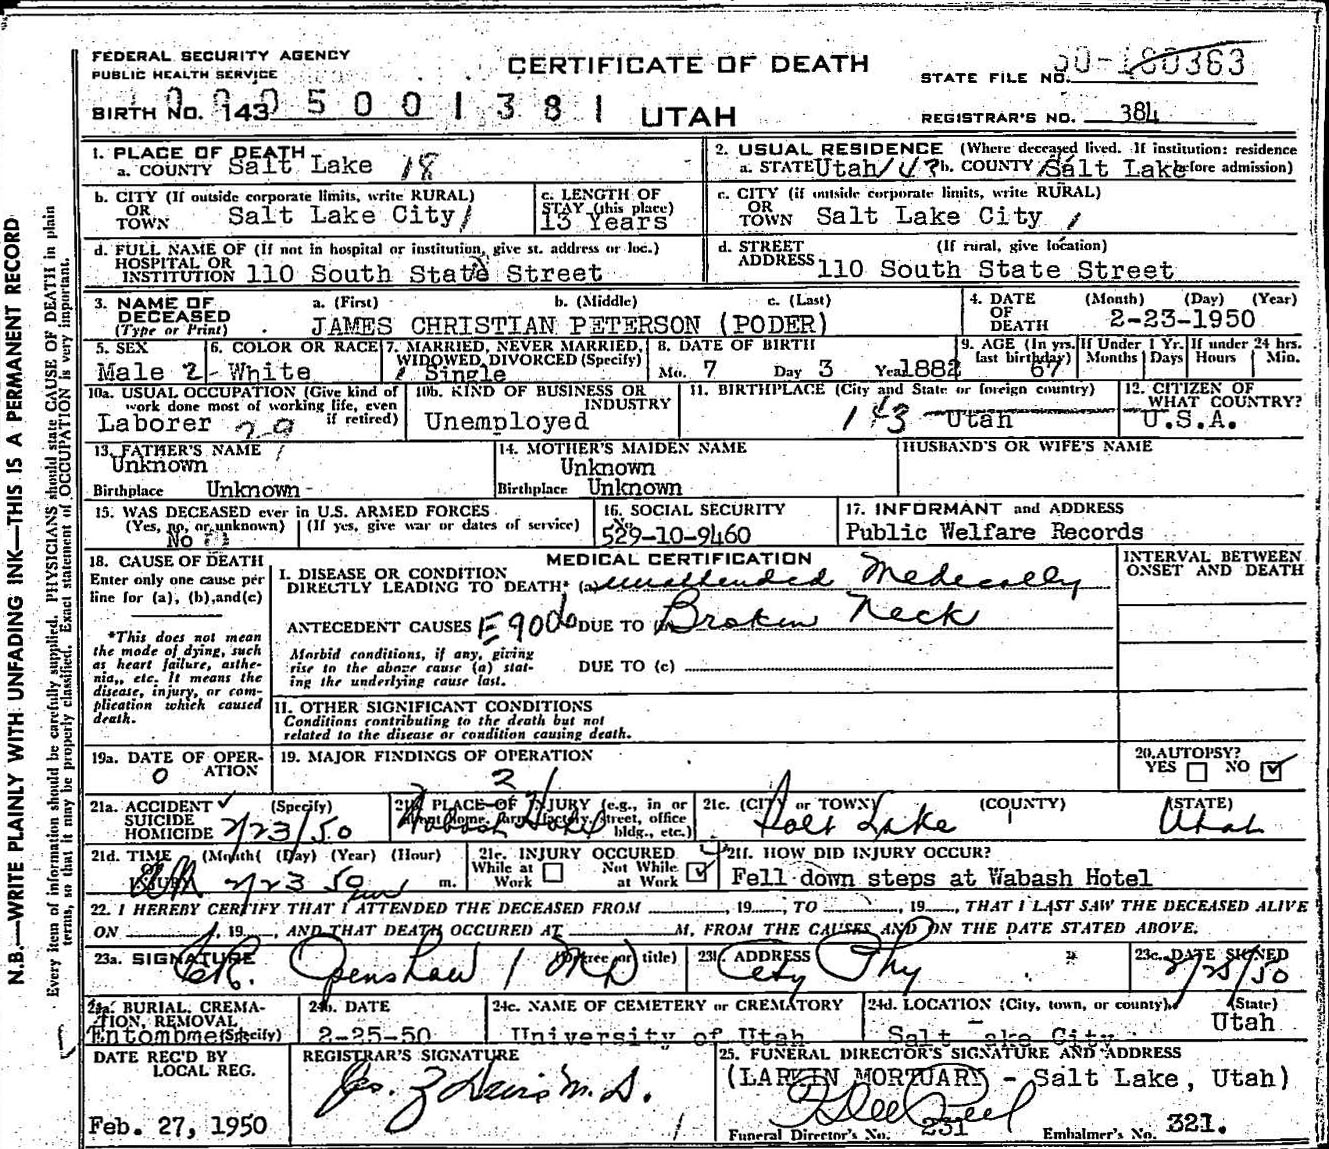 FEDERAL SECURITY AGENCY
PUBLIC HEALTH SERVICE
CERTIFICATE OF DEATH
STATE FILE NO. 50-180363
BIRTH NO. 143 0005001381 UTAH
REGISTRAR'S NO. 384
1. PLACE OF DEATH
a. COUNTY Salt Lake 18
2. USUAL RESIDENCE (Where deceased lived. If institution: residence before admission)
a. STATE Utah / 43 b. COUNTY Salt Lake
b. CITY (If outside corporate limits, write RURAL)
OR TOWN Salt Lake City /
c. LENGTH OF STAY (this place)
13 Years
c. CITY (if outside corporate limits, write RURAL)
OR TOWN Salt Lake City /
d. FULL NAME OF (If not in hospital or institution, give st. address or loc.)
HOSPITAL OR INSTITUTION 110 South State Street
d. STREET ADDRESS (If rural, give location)
110 South State Street
3. NAME OF DECEASED (Type or Print) a. (First) b. (Middle) c. (Last)
JAMES CHRISTIAN PETERSON (PODER)
4. DATE OF DEATH (Month) (Day) (Year)
2-23-1950
5. SEX
Male 2
6. COLOR OR RACE
White
7. MARRIED, NEVER MARRIED, WIDOWED, DIVORCED (Specify)
1 Single
8. DATE OF BIRTH
Mo. 7 Day 3 Year 1882
9. AGE (In yrs. last birthday)
67
If Under 1 Yr. Months Days
If under 24 hrs. Hours Min.
10a. USUAL OCCUPATION (Give kind of work done most of working life, even if retired)
Laborer 29
10b. KIND OF BUSINESS OR INDUSTRY
Unemployed
11. BIRTHPLACE (City and State or foreign country)
143 Utah
12. CITIZEN OF WHAT COUNTRY?
U.S.A.
13. FATHER'S NAME
Unknown
Birthplace Unknown
14. MOTHER'S MAIDEN NAME
Unknown
Birthplace Unknown
HUSBAND'S OR WIFE'S NAME
15. WAS DECEASED ever in U.S. ARMED FORCES
(Yes, no, or unknown) (If yes, give war or dates of service)
No
16. SOCIAL SECURITY No.
529-10-9460
17. INFORMANT and ADDRESS
Public Welfare Records
18. CAUSE OF DEATH
Enter only one cause per line for (a), (b), and (c)
*This does not mean the mode of dying, such as heart failure, asthenia, etc. It means the disease, injury, or complication which caused death.
MEDICAL CERTIFICATION
INTERVAL BETWEEN ONSET AND DEATH
I. DISEASE OR CONDITION
DIRECTLY LEADING TO DEATH* (a) unattended Medically
ANTECEDENT CAUSES E900 DUE TO Broken Neck
Morbid conditions, if any, giving rise to the above cause (a) stating the underlying cause last.
DUE TO (c)
II. OTHER SIGNIFICANT CONDITIONS
Conditions contributing to the death but not related to the disease or condition causing death.
19a. DATE OF OPERATION
0
19. MAJOR FINDINGS OF OPERATION
2
20. AUTOPSY?
YES NO ✓
21a. ACCIDENT ✓ (Specify)
SUICIDE
HOMICIDE 2/23/50
21b. PLACE OF INJURY (e.g., in or about home, farm, factory, street, office bldg., etc.)
Wabash Hotel
21c. (CITY or TOWN) (COUNTY) (STATE)
Salt Lake Utah
21d. TIME OF INJURY (Month) (Day) (Year) (Hour)
2/23 50 m.
21e. INJURY OCCURED
While at Work Not While at Work ✓
21f. HOW DID INJURY OCCUR?
Fell down steps at Wabash Hotel
22. I HEREBY CERTIFY THAT I ATTENDED THE DECEASED FROM , 19 , TO , 19 , THAT I LAST SAW THE DECEASED ALIVE
ON , 19 , AND THAT DEATH OCCURED AT M, FROM THE CAUSES AND ON THE DATE STATED ABOVE.
23a. SIGNATURE (Degree or title)
Openshaw MD
23b. ADDRESS
City Phy
23c. DATE SIGNED
2/25/50
24a. BURIAL, CREMATION, REMOVAL (Specify)
Entombment
24b. DATE
2-25-50
24c. NAME OF CEMETERY or CREMATORY
University of Utah
24d. LOCATION (City, town, or county) (State)
Salt Lake City Utah
DATE REC'D BY LOCAL REG.
Feb. 27, 1950
REGISTRAR'S SIGNATURE
M.D.
25. FUNERAL DIRECTOR'S SIGNATURE AND ADDRESS
(LARKIN MORTUARY - Salt Lake, Utah)
Funeral Director's No. 231 Embalmer's No. 321.
N.B.—WRITE PLAINLY WITH UNFADING INK—THIS IS A PERMANENT RECORD
Every item of information should be carefully supplied. PHYSICIANS should state CAUSE OF DEATH in plain
terms, so that it may be properly classified. Exact statement of OCCUPATION is very important.